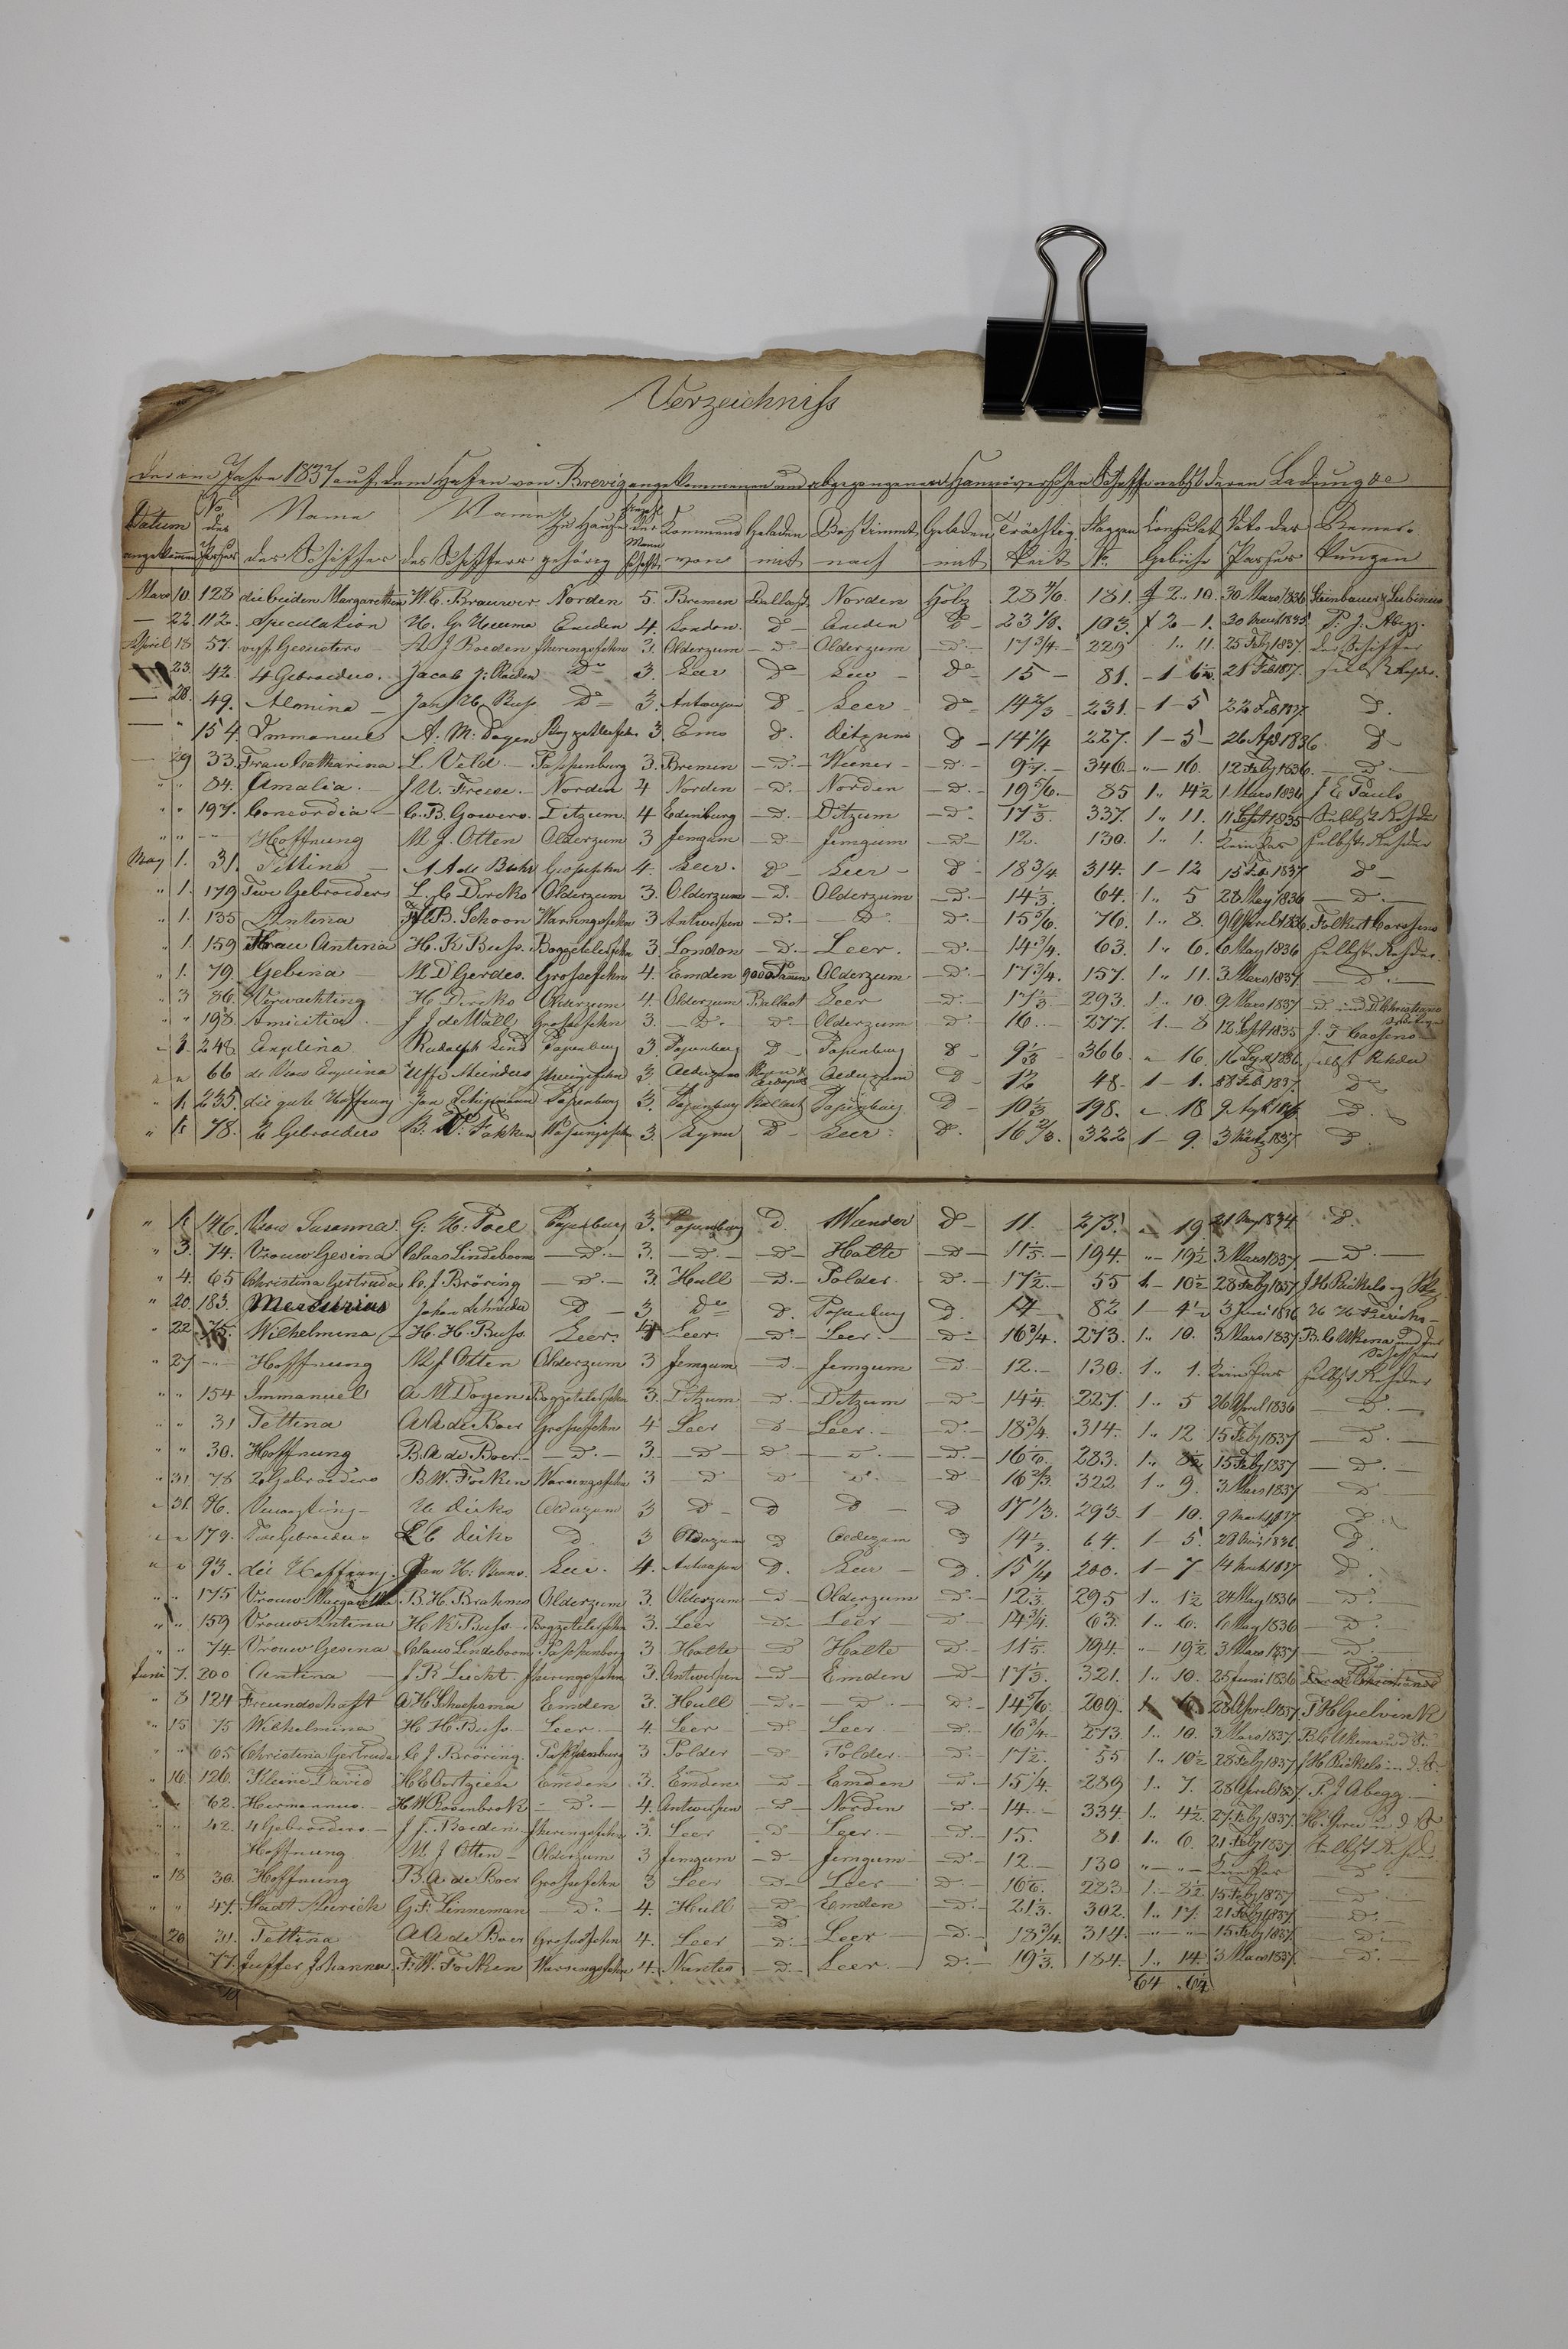 Verzeichniss
der im Jahre 1837 auf dem Hafen von Brevig angekommenen und abgegangenen Hannöverschen Schiffe nebst deren Ladung &c
Datum No. des Name Name zu Hause Anzahl der Kommend Geladen Bestimmt Geladen Trächtig Flaggen Consulat Dato der Bemer-
angekommen Passes des Schiffes des Schiffers gehörig Mannschaft von mit nach mit keit No. Gebühr Passes kungen
Mars 10. 128 die beiden Margarethen W. E. Brauwer Norden 5. Bremen Ballast Norden Holz 23 4/6. 181. 2.. 10. 30 Mars 1836
— 22. 112. Speculation H. G. Emden 4. London. D – Emden D – 193. 2 – 1. 30 P. J. Abegg.
April 18 57. Geswisters A J Boeden Jheringsfehn 3. Olderzum – D. – Olderzum – D. – 17 3/4. – 229 1.. 11. 25 Feby 1837. der Schiffer
23. 42. 4 Gebroeders. Jacob J. Do 3. Leer Do Leer – Do – 15 – 81. – 1 – 6 21 Feb 1837. selbst Rheder.
— 28. 49. Almina – Jan H. Buss Do 3. Antwerpen D – Leer – Do – 14 2/3 231. – 1 – 5 22 Feb 1837. D.
— " 154 Immanuel A. M. Doyen 3. Ems D. Ditzum D – 14 1/4 227. 1 – 5 – 26 Apl 1836. D –
— 29 33. Frau Catharina L. Veld. – Papenburg 3. Bremen – D. – Weener – – D. – 346. – " – 16. 12 Feby 1836. – D. –
" " 84. Amalia. – J. U. Freese. – Norden 4 Norden – D. – Norden – – D. – 19 5/6. – 85 1.. 14 1/2 1 Mars 1836 J E Pauls
" " 197. Concordia – C. B. Gowers. Ditzum. 4 Edinburg – D. – Ditzum – D. – 17 2/3. 337. 1.. 11. 11 Sept 1835 – Selbst Rheder
" " – – Hoffnung M J. Otten Olderzum 3 Jemgum – D – Jemgum – D – 12. 130. 1.. 1. kein Pas selbst Rheder
May 1. 31. Tettina – A A de Buhr Grossefehn 4. Leer. D – Leer – D – 18 3/4 314. 1 – 12 15 Feb 1837 D –
" 1. 179 Twe Gebroeders L. C Dircks Olderzum 3. Olderzum – D. – Olderzum – D. – 14 1/3 64. 1.. 5 28 May 1836 – D. –
" 1. 135 Antina B. Schoon Warsingsfehn 3 Antwerpen – D. – – D. D. – 15 5/6. 76. 1.. 8. 9 April 1836 Folkert Carssens
" 1. 159 Frau Antina H. K Buss. Bogzetelersfehn 3. London – D. – Leer. – D. – 14 3/4. 63. 1.. 6. 6 May 1836 selbst Rheder
" 1. 79. Gebina – M. D Gerdes. Grossefehn 4. Emden 9000 Olderzum – D. – 17 3/4. 157. 1.. 11. 3. Mars 1837 – D. –
" 3 86. Verwachting H Dircks Olderzum 4. Olderzum Ballast Leer – D. – 17 1/3 – 293. 1.. 10. 9 Mars 1837 D. und
" " 198. Amicitia. – J J de Wall Grossefehn 3. – D. – D. – Olderzum – D. – 16. – 277. 1. – 8 12 Sept 1835 J. F. Carssens
1. 248 Rudolph Lind Papenburg 3. Papenburg D – Papenburg D – 9 1/3 366. " 16. selbst Rheder
66 de Vrow Meinders 3. D – 12 48. 1 – 1. 28 Feb 1837. D –
1. 235. die gute Hoffnung Jan Schipmann Papenburg 3. Papenburg Ballast Papenburg D – 10 1/3 198. " 18 D.
78. 2 Gebroeders B. W. Fokken 3. D – Leer. D. 16 2/3. 322 1 – 9. 3 Martz 1837 D.
146. Vrow Susanna. G. H. Poel Papenburg 3. Papenburg D. D – 11. 273. " 19 1834 D.
" 3. 74. Vrouw Gesina Claas Lindeboom – D. – 3. – D. – – D – Halte – D – 11 1/3. 194. " – 19 1/2 3 Mars 1837. – D. –
" 4. 65 Christina Gertruda C. J Bröring – D. – 3. Hull – D. – Polder. D. – 17 1/2. – 55 1 – 10 1/2 28 Feby 1837 J H Rickels
" 20 183. Mercurius Johan Schröder D – 3 Do D. Papenburg D. 14 82 1 – 4 1/2 3 Juni 1836
" 22 75. Wilhelmina – H. H. Buss Leer. 4 Leer. – D. – Leer. D. – 16 3/4. 273. 1.. 10. 3 Mars 1837 B. C Ukena und der Schiffer
" 27 – – Hoffnung M J Otten Olderzum 3 Jemgum – D – Jemgum D – 12. – 130. 1.. 1. kein Pas selbst Rheder
" " 154 Immanuel A M Doyen Bogzetelersfehn 3. Ditzum – D. – Ditzum – D – 14 1/4 227. 1.. 5 26 April 1836 – D. –
" " 31 Tettina A A de Boer Grossefehn 4 Leer D – Leer. – – D. – 18 3/4 314. 1.. 12 15 Feby 1837 – D. –
" " 30. Hoffnung B. A de Boer – – D. – 3. – D – D. – – D. – – D. – 16 1/6. 283. 1.. 8 1/2 15 Feby 1837 – D. –
" 31 78 2 Gebroeders B W. Focken Warsingsfehn 3 – D D D. – D – 16 2/3. 322 1.. 9. 3 Mars 1837 – D
31. 86. H Dirks Olderzum 3 D – D D – D 17 1/3. 293. 1 – 10. 9 Mart 1837 D.
179. Twe Gebroeders L C Dirks D. 3 Olderzum D Olderzum D 14 1/3 64. 1 – 5. 28 May 1836 D.
93. die Hoffnung. Jan H. Leer. 4. Antwerpen D. Leer – D. 15 1/4 200. 1 – 7 14 Mart 1837 D.
" " 175 Vrouw Margaretha B. H. Brahms Olderzum 3. Olderzum – D – Olderzum – D. – 12 2/3. 295 1.. 1 1/2 24 May 1836 – D. –
" " 159 Vrouw Antina H K Buss – Bogzetelersfehn 3. Leer – D. – Leer – – D – 14 3/4. 63. 1.. 6. 6 May 1836 – D. –
" " 74. Vrouw Gesina Claas Lindeboom Papenburg 3 Halte – D Halte – D – 11 1/3. 194. " – 19 1/2 3 Mars 1837 – D. –
Juni 7. 200 Antina – J. R Leicht. Jheringsfehn 3. Antwerpen – D – Emden – D – 17 1/3. 321. 1.. 10. 25 Juni 1836
" 8 124 Freundschaft A H Schaepsma Emden 3. Hull – D. – – D. – – D. – 14 5/6. 209. 1 28 April 1837 T H Gjelvink
" 15 75 Wilhelmina H H Buss – Leer – 4. Leer – – D. Leer – D. – 16 3/4. – 273. 1.. 10. 3 Mars 1837 B C Ukena u d S.
" " 65 Christina Gertruda C J Bröring. Papenburg 3 Polder – D – Polder. – D. – 17 1/2. 55 1.. 10 1/2 28 Feby 1837 J H Rickels u. d. S.
" 16. 126. Kleine David H E Oortgiese Emden 3. Emden – D – Emden – D. – 15 1/4. 289 1.. 7. 28 April 1837. P. J Abegg. –
" " 62. Hermannus. – H W Rosenbrok – D. – 4. Antwerpen – D – Norden – D. – 14. – 334. 1.. 4 1/2. 27. Feby 1837.
" " 42. 4 Gebroeders. – J J. Boeden. – Jheringsfehn 3. Leer – D – Leer. – – D. – 15. 81. 1.. 6. 21 Feby 1837. selbst Rheder
Hoffnung M J Otten – Olderzum 3 Jemgum – D – Jemgum – – D. – 12. – 130 " – " – kein Pas D.
" 18 30. Hoffnung B. A de Boer Grossefehn 3 Leer – D – Leer – – D. – 16 1/6. 283. 1. – 8 1/2 15 Feby 1837 D. –
" " 47. Stadt Aurich G. F. Linneman – D. – 4. Hull – D – Emden – D. – 21 1/3. 302. 1.. 17. 21 Feby 1837 – D. –
20 31. Tettina A A de Boer Grossefehn 4. Leer D. – Leer – D. – 18 3/4. 314. – " – " – 15 Feby 1837. – D. –
77. Juffer Johanna F. W. Focken Warsingsfehn 4. Nantes – D. – Leer. – D. – 19 1/3. 184. 1.. 14. 3 Mars 1837. – D. –
64 .. 6 1/2